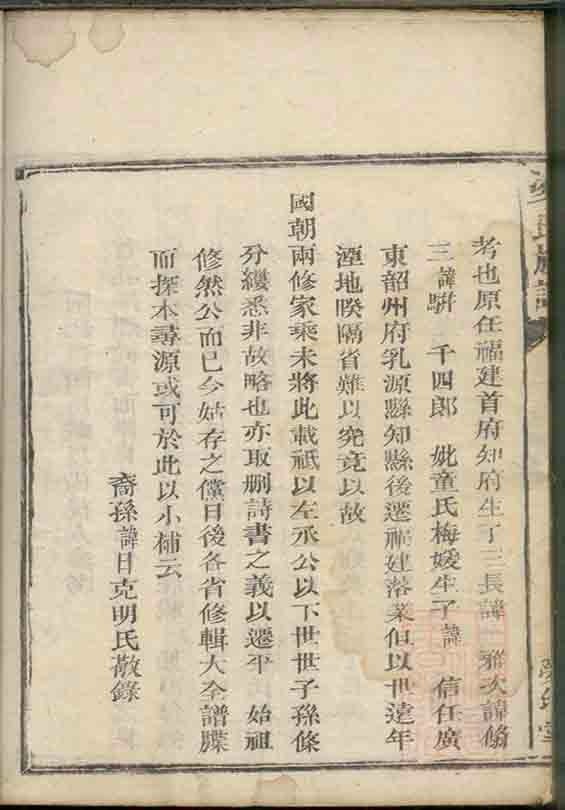 考也原任福建首府知府生子三長諱 雅次諱脩
三諱騈 千四郎 妣童氏梅媛生子諱 信任廣
東韶州府乳源縣知縣後遷福建落業但以世遠年
湮地暌隔省難以究竟以故
國朝兩修家乘未將此載祇以左丞公以下世世子孫條
分縷悉非故略也亦取刪詩書之義以遷平 始祖
修然公而已今姑存之儻日後各省修輯大全譜牒
而探本尋源或可於此以小補云
裔孫諱日克明氏敬錄